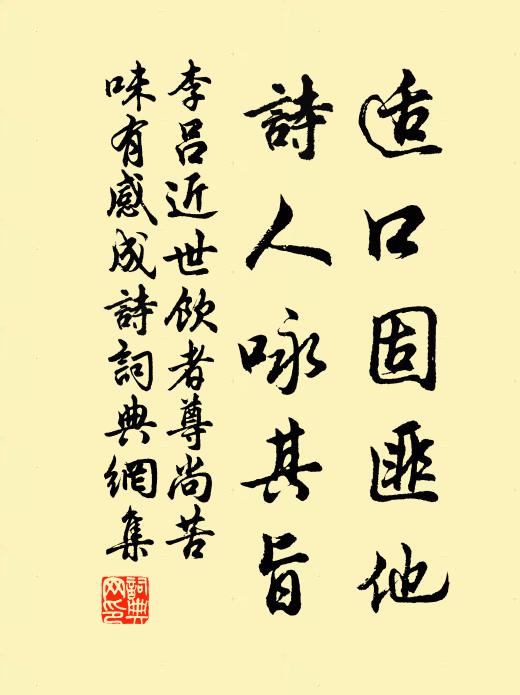 适口固匪他
詩人咏其旨
李呂近世飲者尊尚苦
味有感成詩詞典網集
詞典
网印